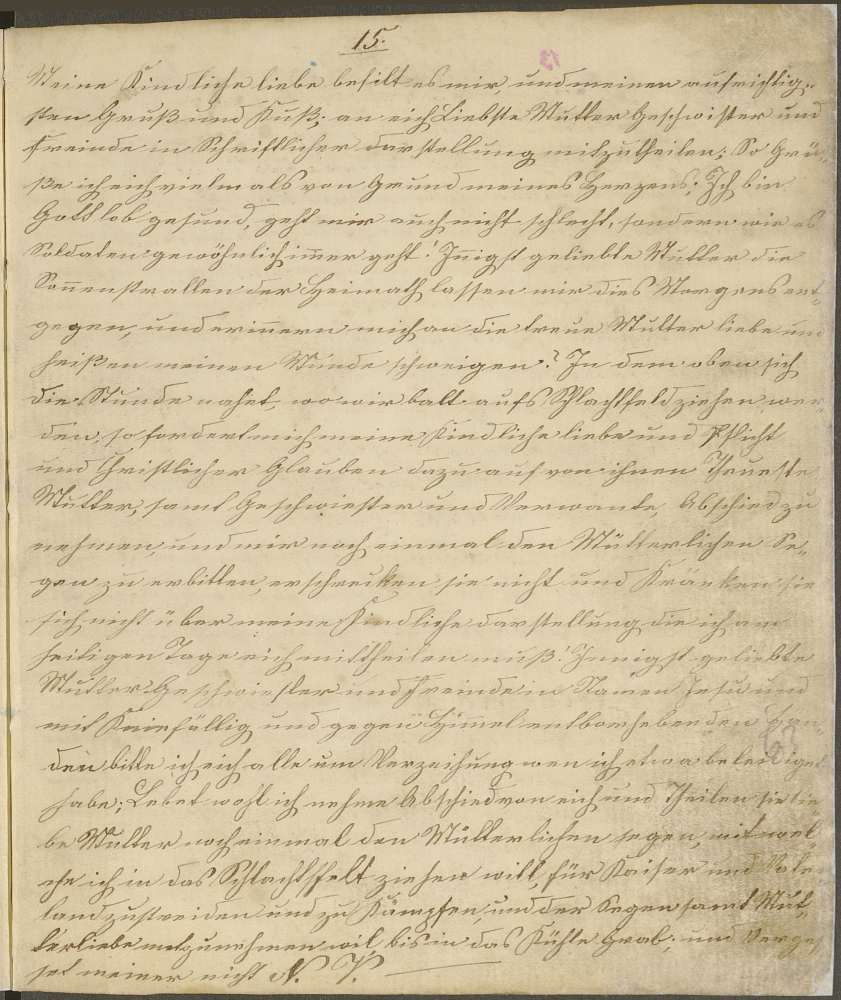 15.
Meine Kindliche liebe befilt es mir, und meinen aufrichtig-
sten Gruß und Kuß; an eich Liebste Mutter Geschwister und
freinde in Schriftlicher darstellung mitzutheilen; So Grü-
ße ich eich vielmals von Grund meines Herzens; Ich bin
Gottlob gesund, geht mir auch nicht schlecht, sondern wie es
Soldaten gewöhnlich im̅er geht! In̅igst geliebte Mutter die
Son̅enstrallen der Heimath lassen mir dies Morgens ent-
gegen, und erin̅ern mich an die treue Mutter liebe und
heißen meinen Munde schweigen? In dem oben sich
die Stunde nahet, wo wir balt aufs Schlachtfeld ziehen wer-
den, so fordert mich meine Kindliche liebe und Pflicht
und Christlicher Glauben dazu auf von ihnen Theueste
Mutter, samt Geschwiester und Verwante Abschied zu
nehmen, und mir noch einmal den Mütterlichen Se-
gen zu erbitten, erschrecken sie nicht und Kränken sie
sich nicht über meine Kindliche darstellung die ich am
heitigen Tage eich mittheilen muß! Innigst geliebte
Mutter! Geschwiester und freinde in Namen Jesu und
mit Kniefällig und gegen Him̅el entborhebenden Hän-
den bitte ich eich alle um Verzeihung wen ich etwa beleidiget
habe; Lebet wohl ich nehme Abschied von eich und Theilen sie lie-
be Mutter noch einmal den Mütterlichen segen, mit wel-
che ich in das Schlachtfelt ziehen will, für Kaiser und Vater
land zu streiden und zu Kämpfen und der Segen samt Mut-
terliebe mitzunehmen wil bis in das Kühle Grab; und Verges
set meiner nicht N. V.